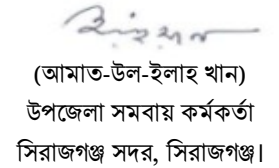 (আমাত-উল-ইলাহ খান)
উপজেলা সমবায় কর্মকর্তা
সিরাজগঞ্জ সদর, সিরাজগঞ্জ।